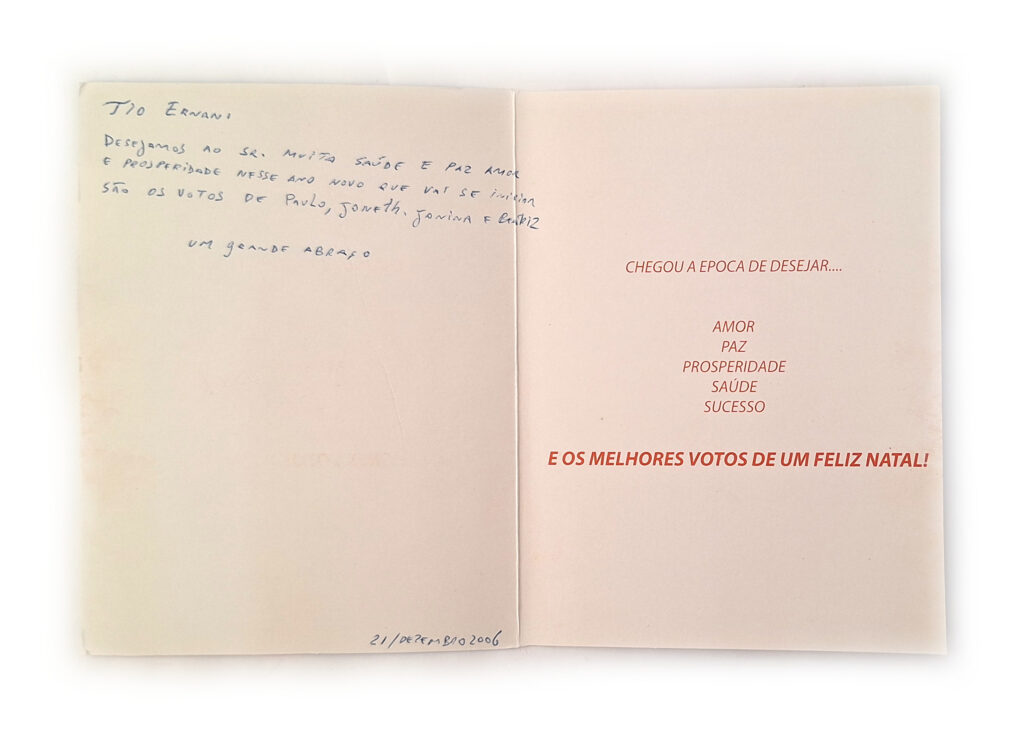 Tio Ernani
Desejamos ao Sr. muita saúde e paz amor
e prosperidade nesse ano novo que vai se iniciar
são os votos de Paulo, Joneth. Jonina e Beatriz
um grande abraço
21/Dezembro 2006
CHEGOU A EPOCA DE DESEJAR....
AMOR
PAZ
PROSPERIDADE
SAÚDE
SUCESSO
E OS MELHORES VOTOS DE UM FELIZ NATAL!